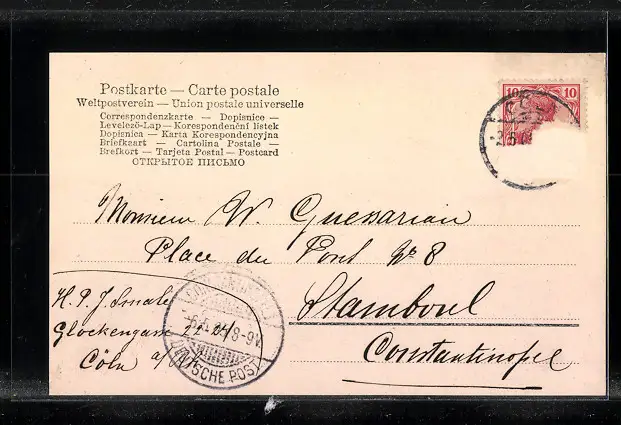 Postkarte — Carte postale
Weltpostverein — Union postale universelle
Correspondenzkarte — Dopisnice —
Levelező-Lap — Korespondenční lístek
Dopisnica — Karta Korespondencyjna
Briefkaart — Cartolina Postale —
Brefkort — Tarjeta Postal — Postcard
ОТКРЫТОЕ ПИСЬМО
10 10
Monsieur W. Guesarian
Place du Pont No 8
Stamboul
Constantinopel
H. P. J.
Glockengasse 22-24
Cöln a/
8-9V.
SCHE POST